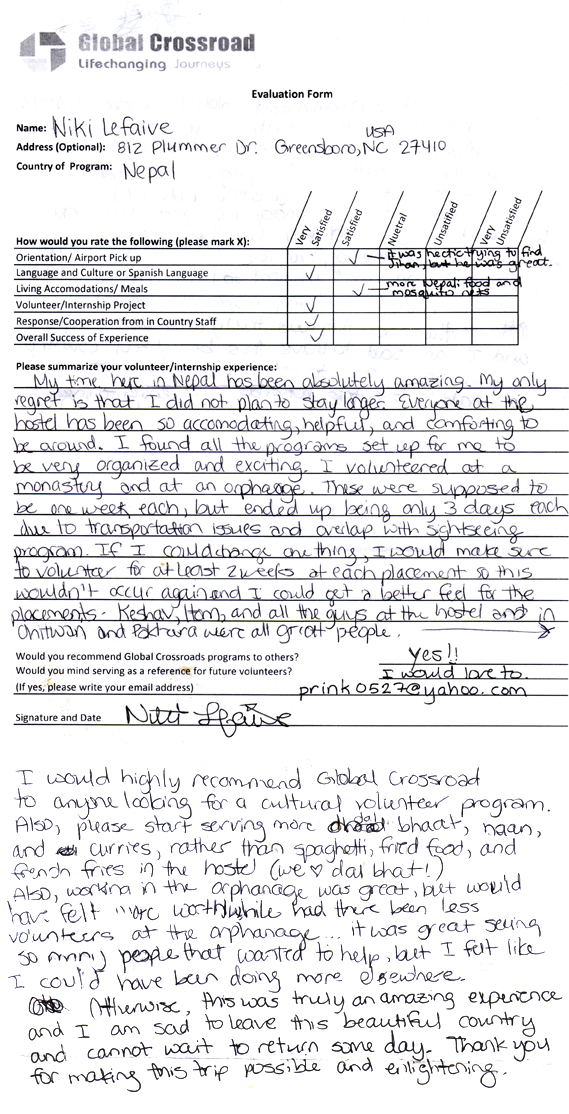 Global Crossroad
Lifechanging Journeys
Evaluation Form
Name: Niki Lefaive
USA
Address (Optional): 812 Plummer Dr. Greensboro, NC 27410
Country of Program: Nepal
How would you rate the following (please mark X):
Very Satisfied
Satisfied
Nuetral
Unsatified
Very Unsatisfied
Orientation/ Airport Pick up ✓ it was hectic trying to find
Jihan, but he was great.
Language and Culture or Spanish Language ✓
Living Accomodations/ Meals ✓ more Nepali food and
mosquito nets
Volunteer/Internship Project ✓
Response/Cooperation from in Country Staff ✓
Overall Success of Experience ✓
Please summarize your volunteer/internship experience:
My time here in Nepal has been absolutely amazing. My only
regret is that I did not plan to stay longer. Everyone at the
hostel has been so accomodating, helpful, and comforting to
be around. I found all the programs set up for me to
be very organized and exciting. I volunteered at a
monastry and at an orphange. These were supposed to
be one week each, but ended up being only 3 days each
due to transportation issues and overlap with sightseeing
program. If I could change one thing, I would make sure
to volunteer for at least 2 weeks at each placement so this
wouldn't occur again and I could get a better feel for the
placements. Keshav, Hom, and all the guys at the hostel and in
Chitwan and Pokhara were all great people.
Would you recommend Global Crossroads programs to others? yes!!
Would you mind serving as a reference for future volunteers? I would love to.
(If yes, please write your email address) prink0527@yahoo.com
Signature and Date Niki Lefaive
I would highly recommend Global Crossroad
to anyone looking for a cultural volunteer program.
Also, please start serving more dal bhaat, naan,
and curries, rather than spaghetti, fried food, and
french fries in the hostel (we ♡ dal bhat!)
Also, working in the orphanage was great, but would
have felt more worthwhile had there been less
volunteers at the orphanage... it was great seeing
so many people that wanted to help, but I felt like
I could have been doing more elsewhere.
Otherwise, this was truly an amazing experience
and I am sad to leave this beautiful country
and cannot wait to return some day. Thank you
for making this trip possible and enlightening.